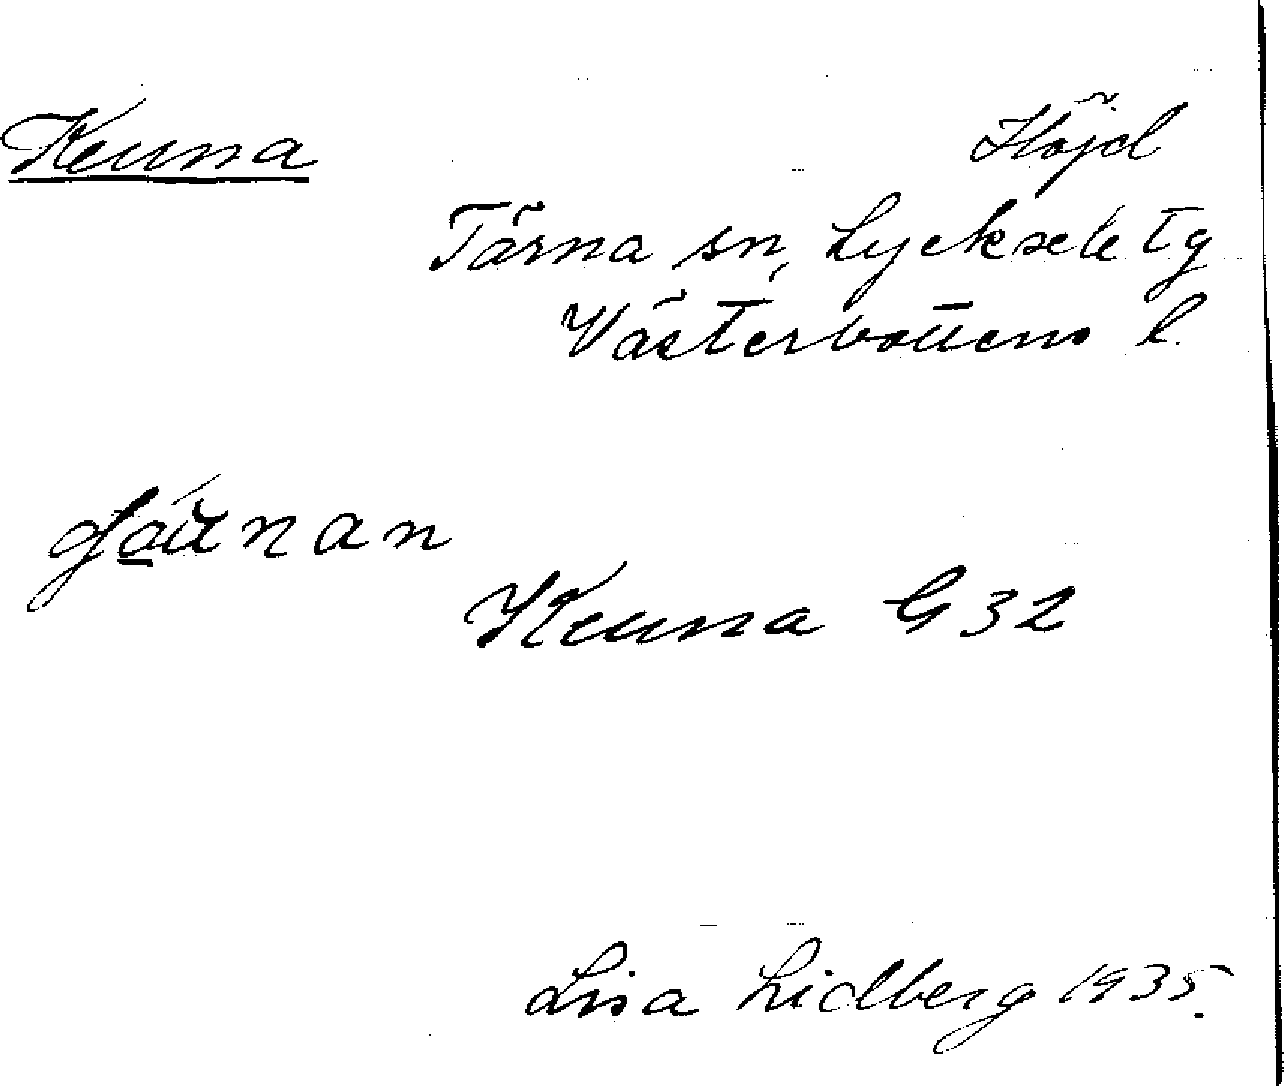 Keuna Höjd
Tärna sn, Lycksele tg
Västerbottens l.
Keuna G32
Lisa Lidberg 1935.